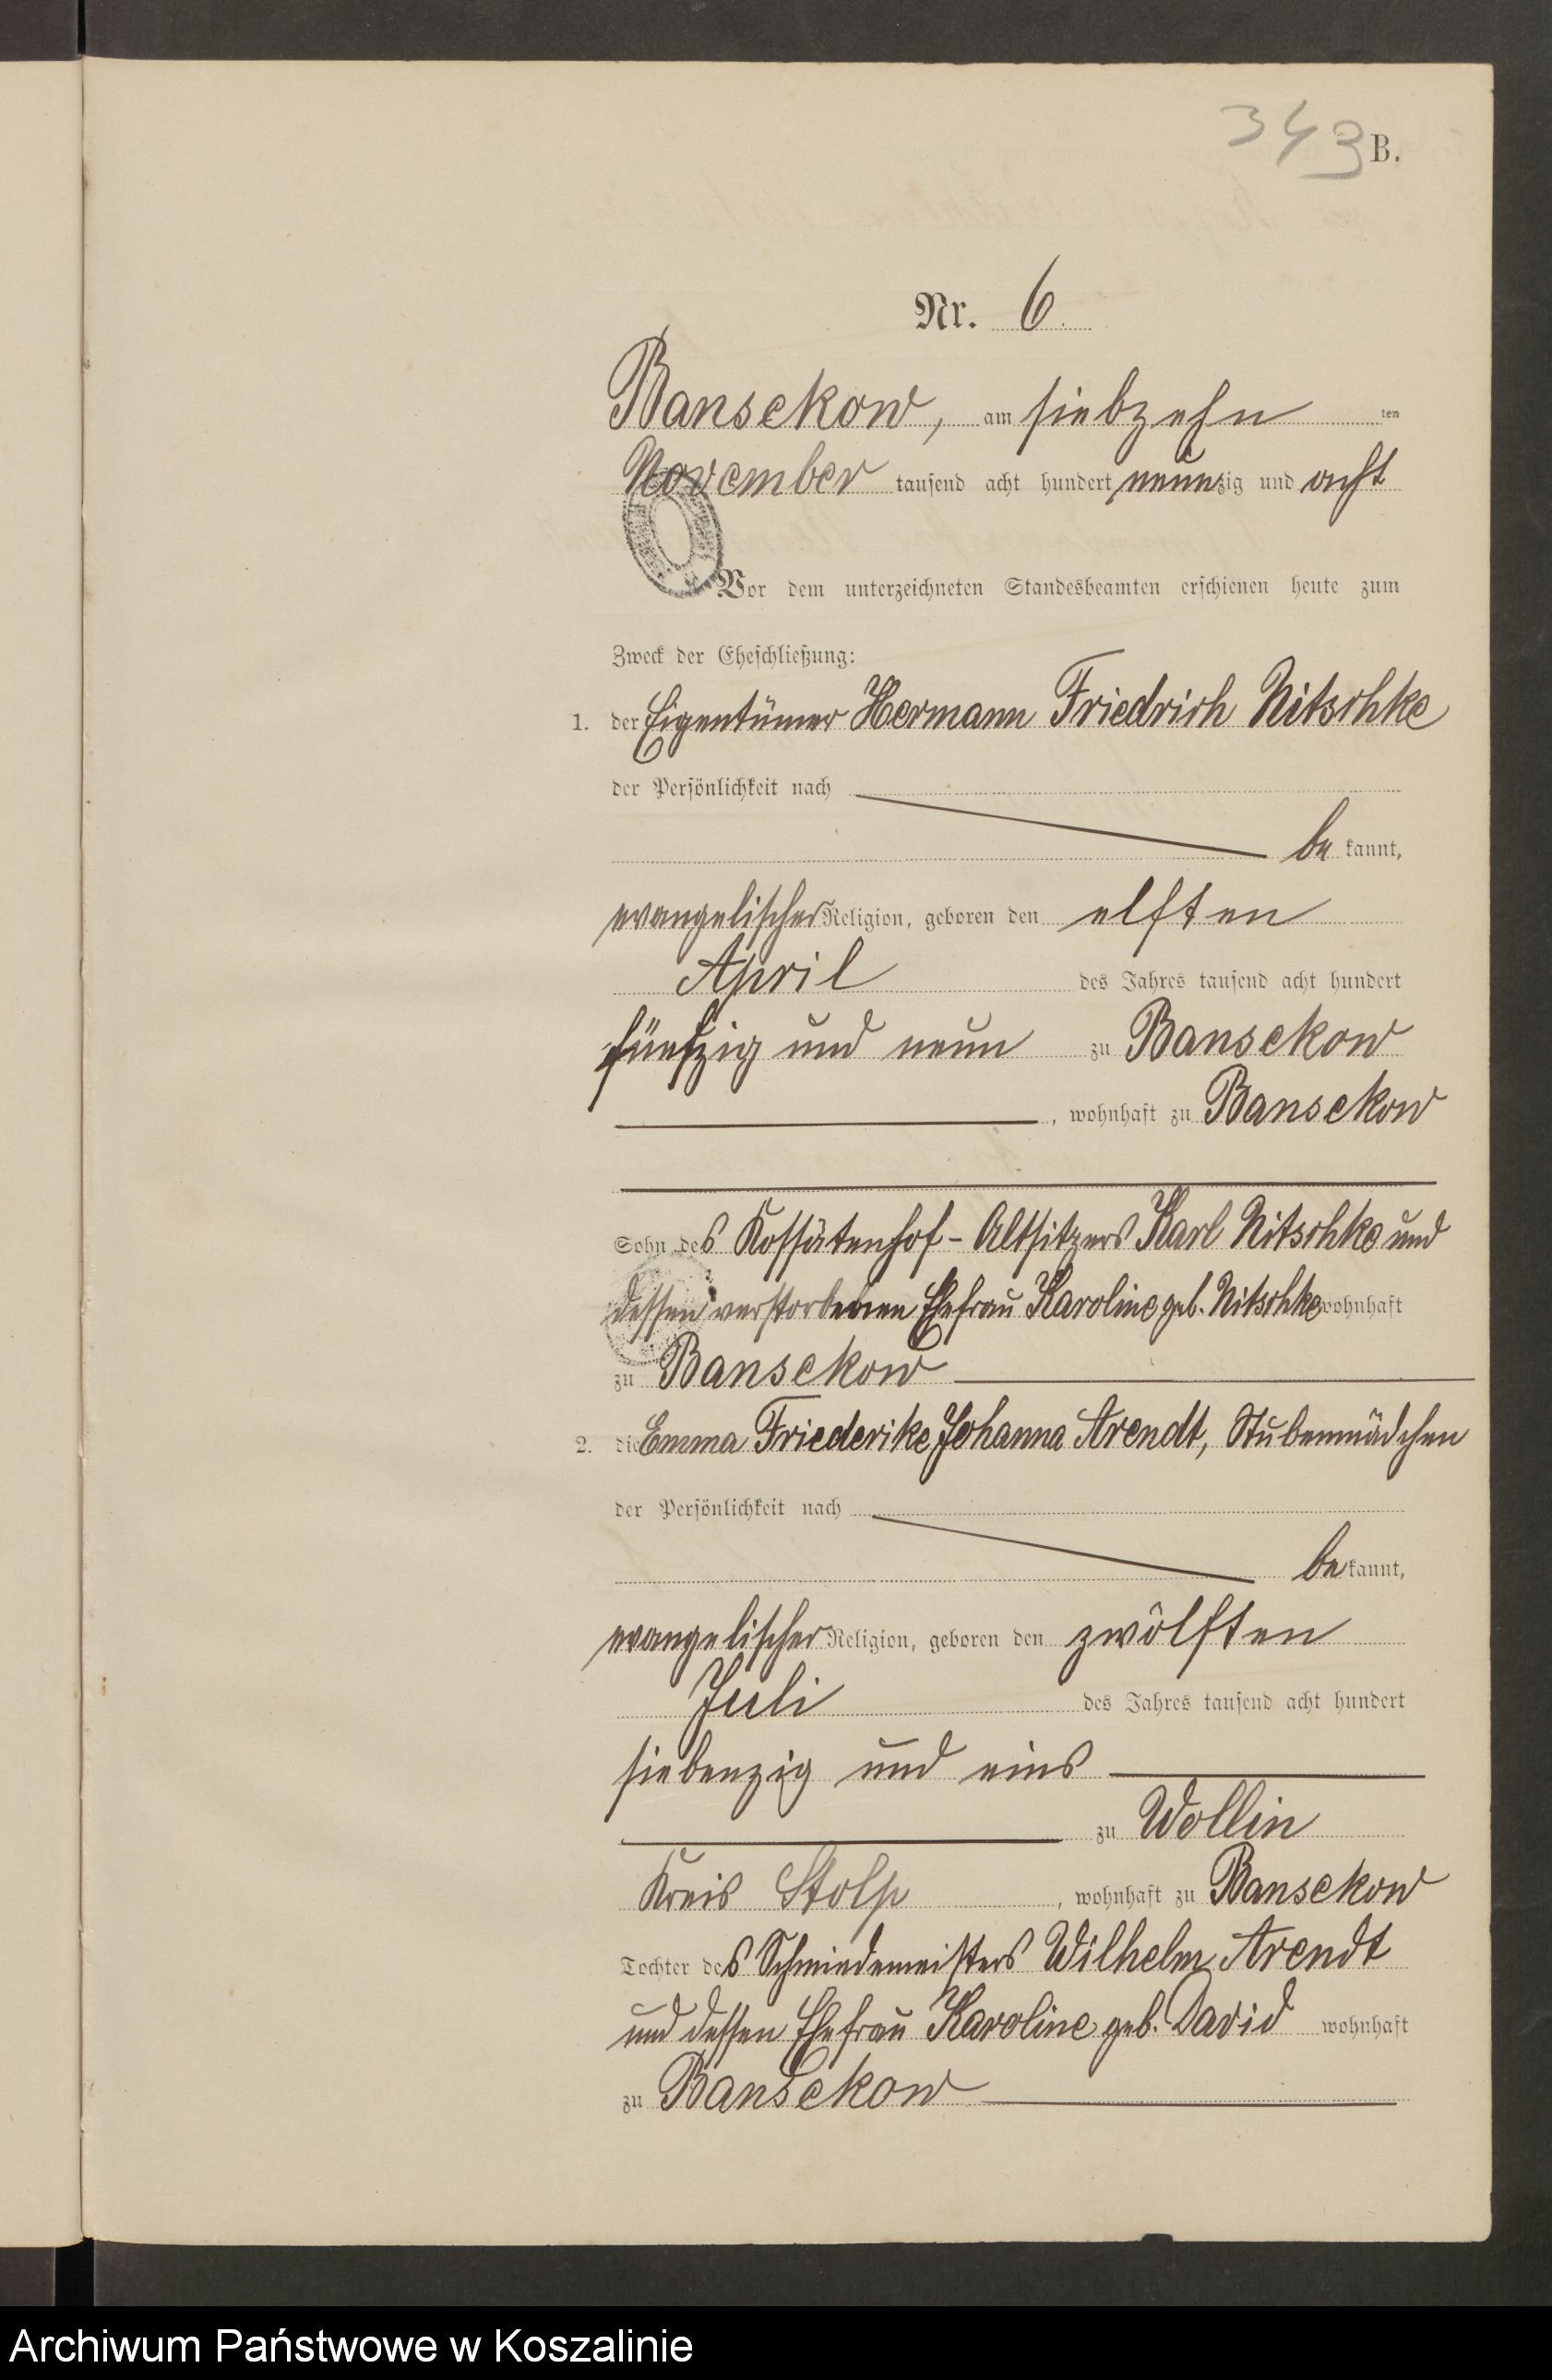 343 B.
Nr. 6.
Bansekow, am siebzehn ten
November tausend acht hundert neunzig und acht
Vor dem unterzeichneten Standesbeamten erschienen heute zum
Zweck der Eheschließung:
1. der Eigentümer Hermann Friedrich Nitschke
der Persönlichkeit nach
be kannt,
evangelischer Religion, geboren den elften
April des Jahres tausend acht hundert
fünfzig und neun zu Bansekow
, wohnhaft zu Bansekow
Sohn des Kossätenhof-Altsitzers Karl Nitschke und
dessen verstorbenen Ehefrau Karoline geb. Nitschke wohnhaft
zu Bansekow
2. die Emma Friederike Johanna Arendt, Stubenmädchen
der Persönlichkeit nach
be kannt,
evangelischer Religion, geboren den zwölften
Juli des Jahres tausend acht hundert
siebenzig und eins
zu Wollin
Kreis Stolp, wohnhaft zu Bansekow
Tochter des Schmiedemeisters Wilhelm Arendt
und dessen Ehefrau Karoline geb. David wohnhaft
zu Bansekow
Archiwum Państwowe w Koszalinie